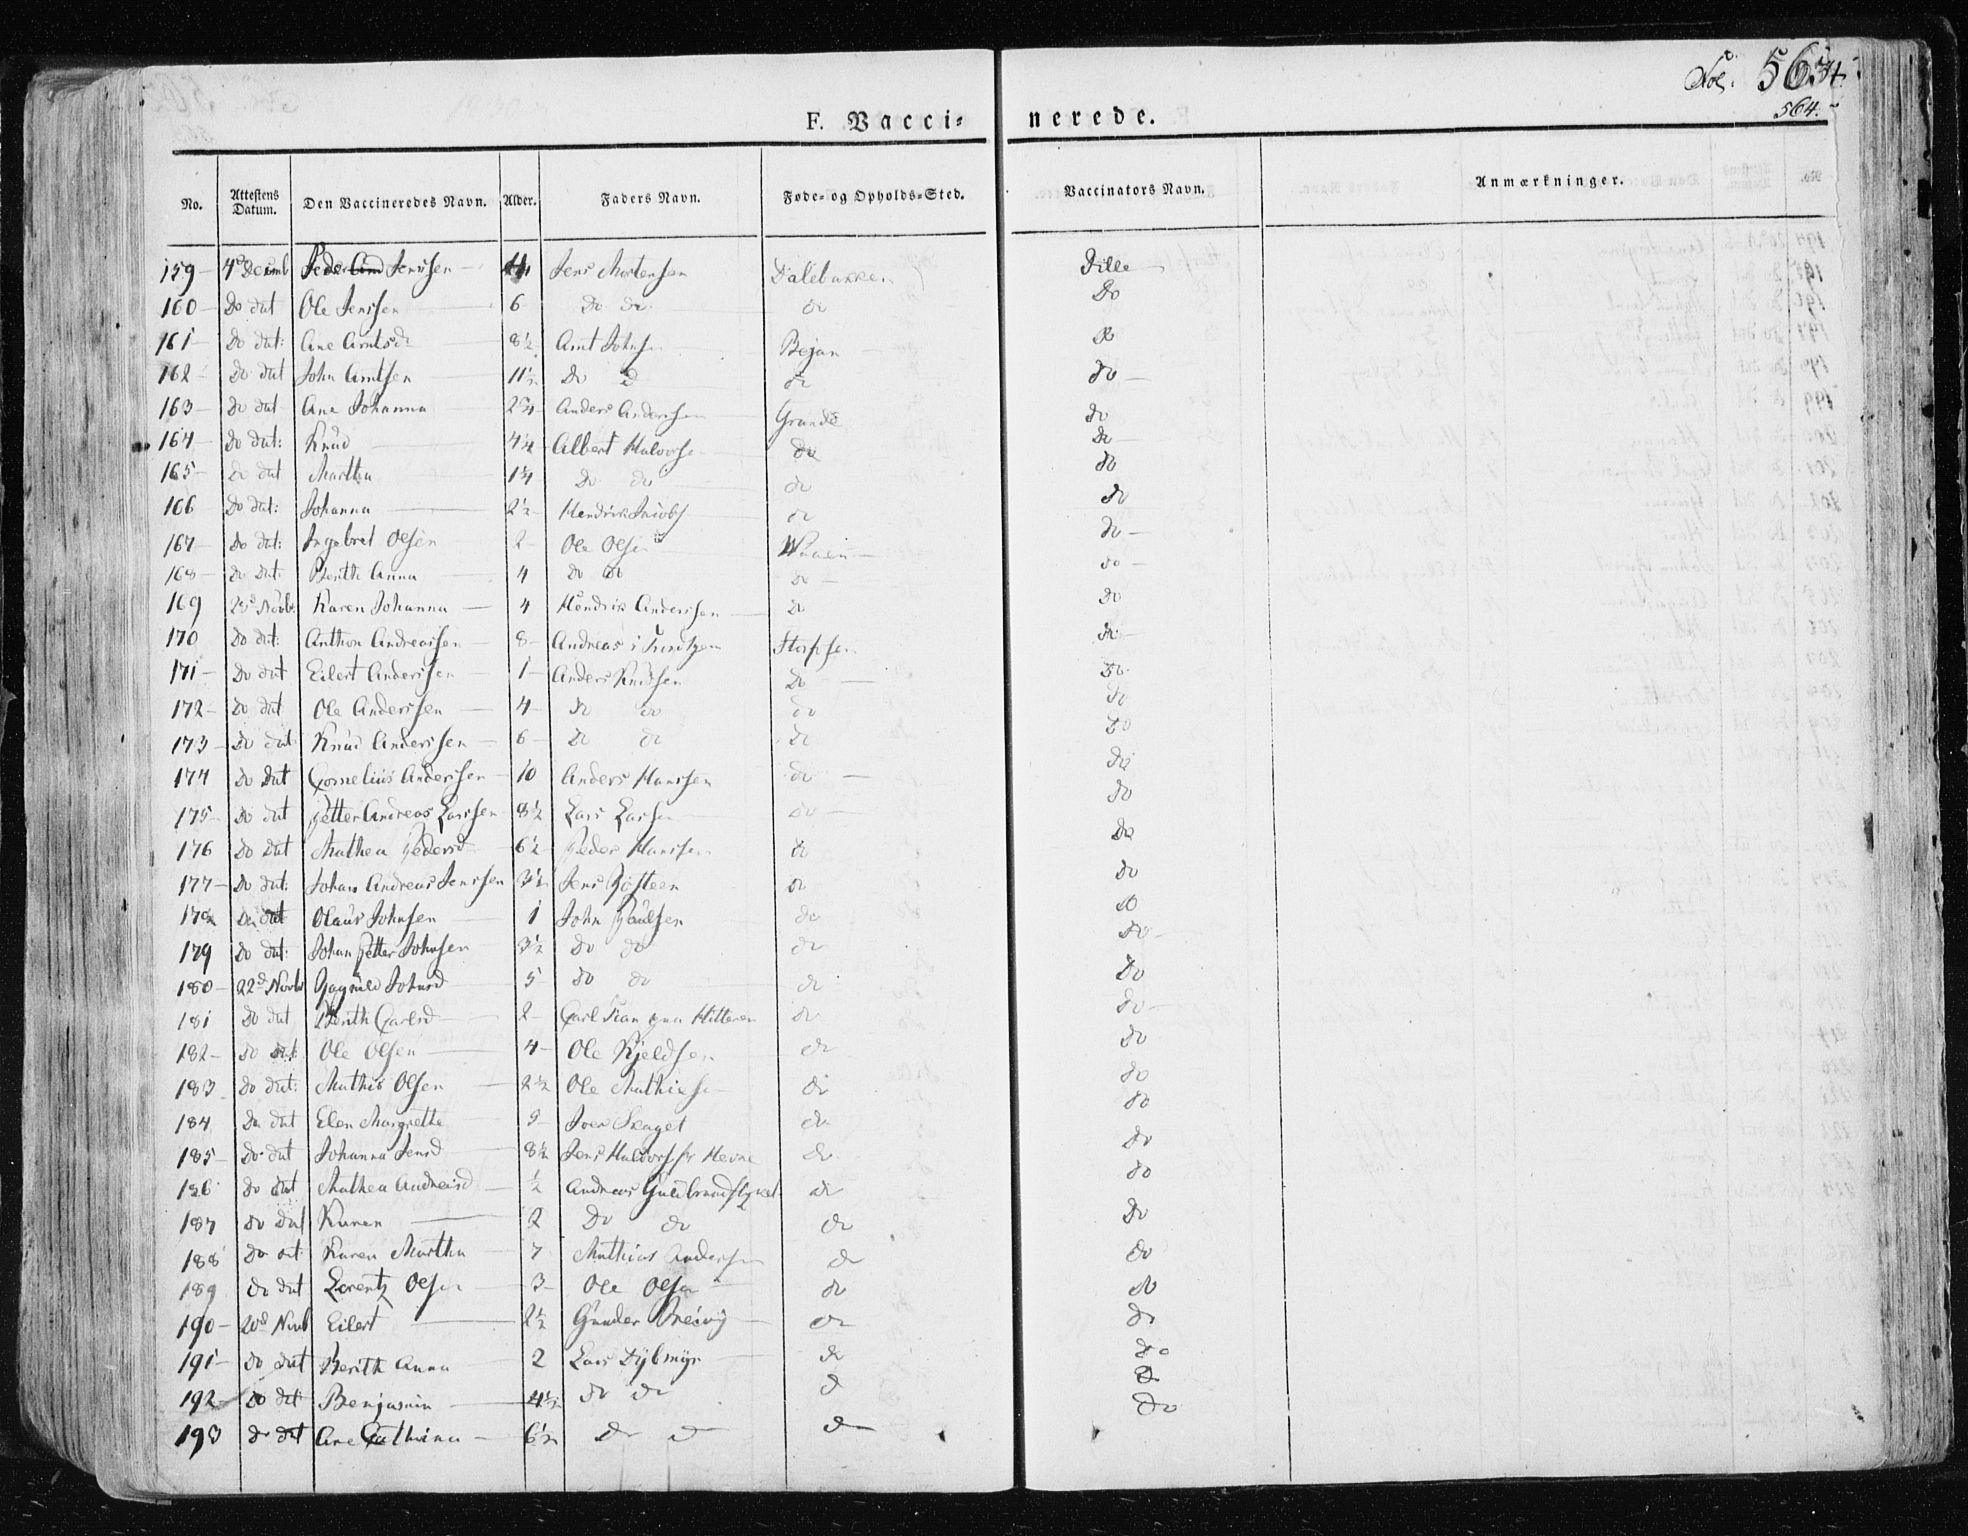 Fol. 563
564.
F. Vaccinerede.
No. Attestens Datum. Den Vaccineredes Navn. Alder. Faders Navn. Føde- og Opholds-Sted. Vaccinators Navn. Anmærkninger.
159 4d Decemb Peder Jenssen Jens Mortensen Dalebakken Dille
160 Do dat Ole Jenssen 6 Do do do Do
161 Do dat: Ane Arntsd 8½ Arnt Johns Bejan do
162 Do dat John Arntsen 11½ Do D do do
163 do dat Ane Johanna 2¾ Anders Anderssen Grande do
164 Do dat: Knud 4¼ Albert Halvorse do do
165 Do dat Martha 1¼ Do do do do
166 Do dat: Johanna 2½ Hendrik Jacobs do do
167 do dat: Ingebret Olsen 2 Ole Olsen do
168 do dat: Berith Anna 4 do do do do
169 23d Novbr Karen Johanna 4 Hendrik Anderssen do do
170 Do dat: Anthon Andreassen 8 Andreas i do
171 Do dat Eilert Anderssen 1 Anders Knudsen Do do
172 do dat Ole Anderssen 4 do do do do
173 Do dat Knud Anderssen 6 do do do do
174 do dat Cornelius Anderssen 10 Anders Hanssen do do
175 Do dat Petter Andreas Larssen 8½ Lars Larsen do do
176 Do dat Mathea Pedersd 6½ Peder Hanssen do do
177 Do dat: Johan Andreas Jenssen 3½ Jens do do
178 do dat Olaus Johnsen 1 John Paulsen do do
179 do dat: Johan Petter Johnsen 3½ do do do do
180 22d Novbr Johnsd 5 do do do do
181 Do dat Berith Carlsd 2 Carl Hitteren do do
182 do dat Ole Olsen 4 Ole Kjeldsen do do
183 do dat: Mathis Olsen 2½ Ole Mathiess do do
184 do dat Elen Margrethe 9 Iver do do
185 do dat Johanna Jensd 8½ Jens Haldors fr Hevne do do
186 do dat Mathea Andreasd ½ Andreas do do
187 do dat Karen 2 Do do do do
188 do dat Karen Martha 7 Mathias Anderssen do do
189 do dat Lorentz Olsen 3 Ole Olsen do do
190 20d Novb Eilert 2½ Gunder do do
191 do dat Berith Anna 2 Lars Dybmyr do do
192 do dat Benjamin 4½ do do do do
193 do dat Ane Cathrina 6½ do do do do